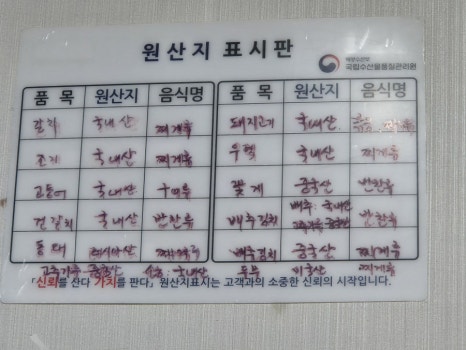 원산지 표시판
해양수산부
국립수산물품질관리원
품 목 원산지 음식명 품 목 원산지 음식명
갈치 국내산 찌개류 돼지고기 국내산
조기 국내산 찌개류 우렁 국내산 찌개류
고등어 국내산 구이류 꽃게 중국산 반찬류
겉절이 국내산 반찬류 배추김치 배추 국내산 반찬류
동태 러시아산 배추김치 중국산 찌개류
고추가루 중국산 국내산 두부 미국산 찌개류
「신뢰를 산다 가치를 판다」 원산지표시는 고객과의 소중한 신뢰의 시작입니다.